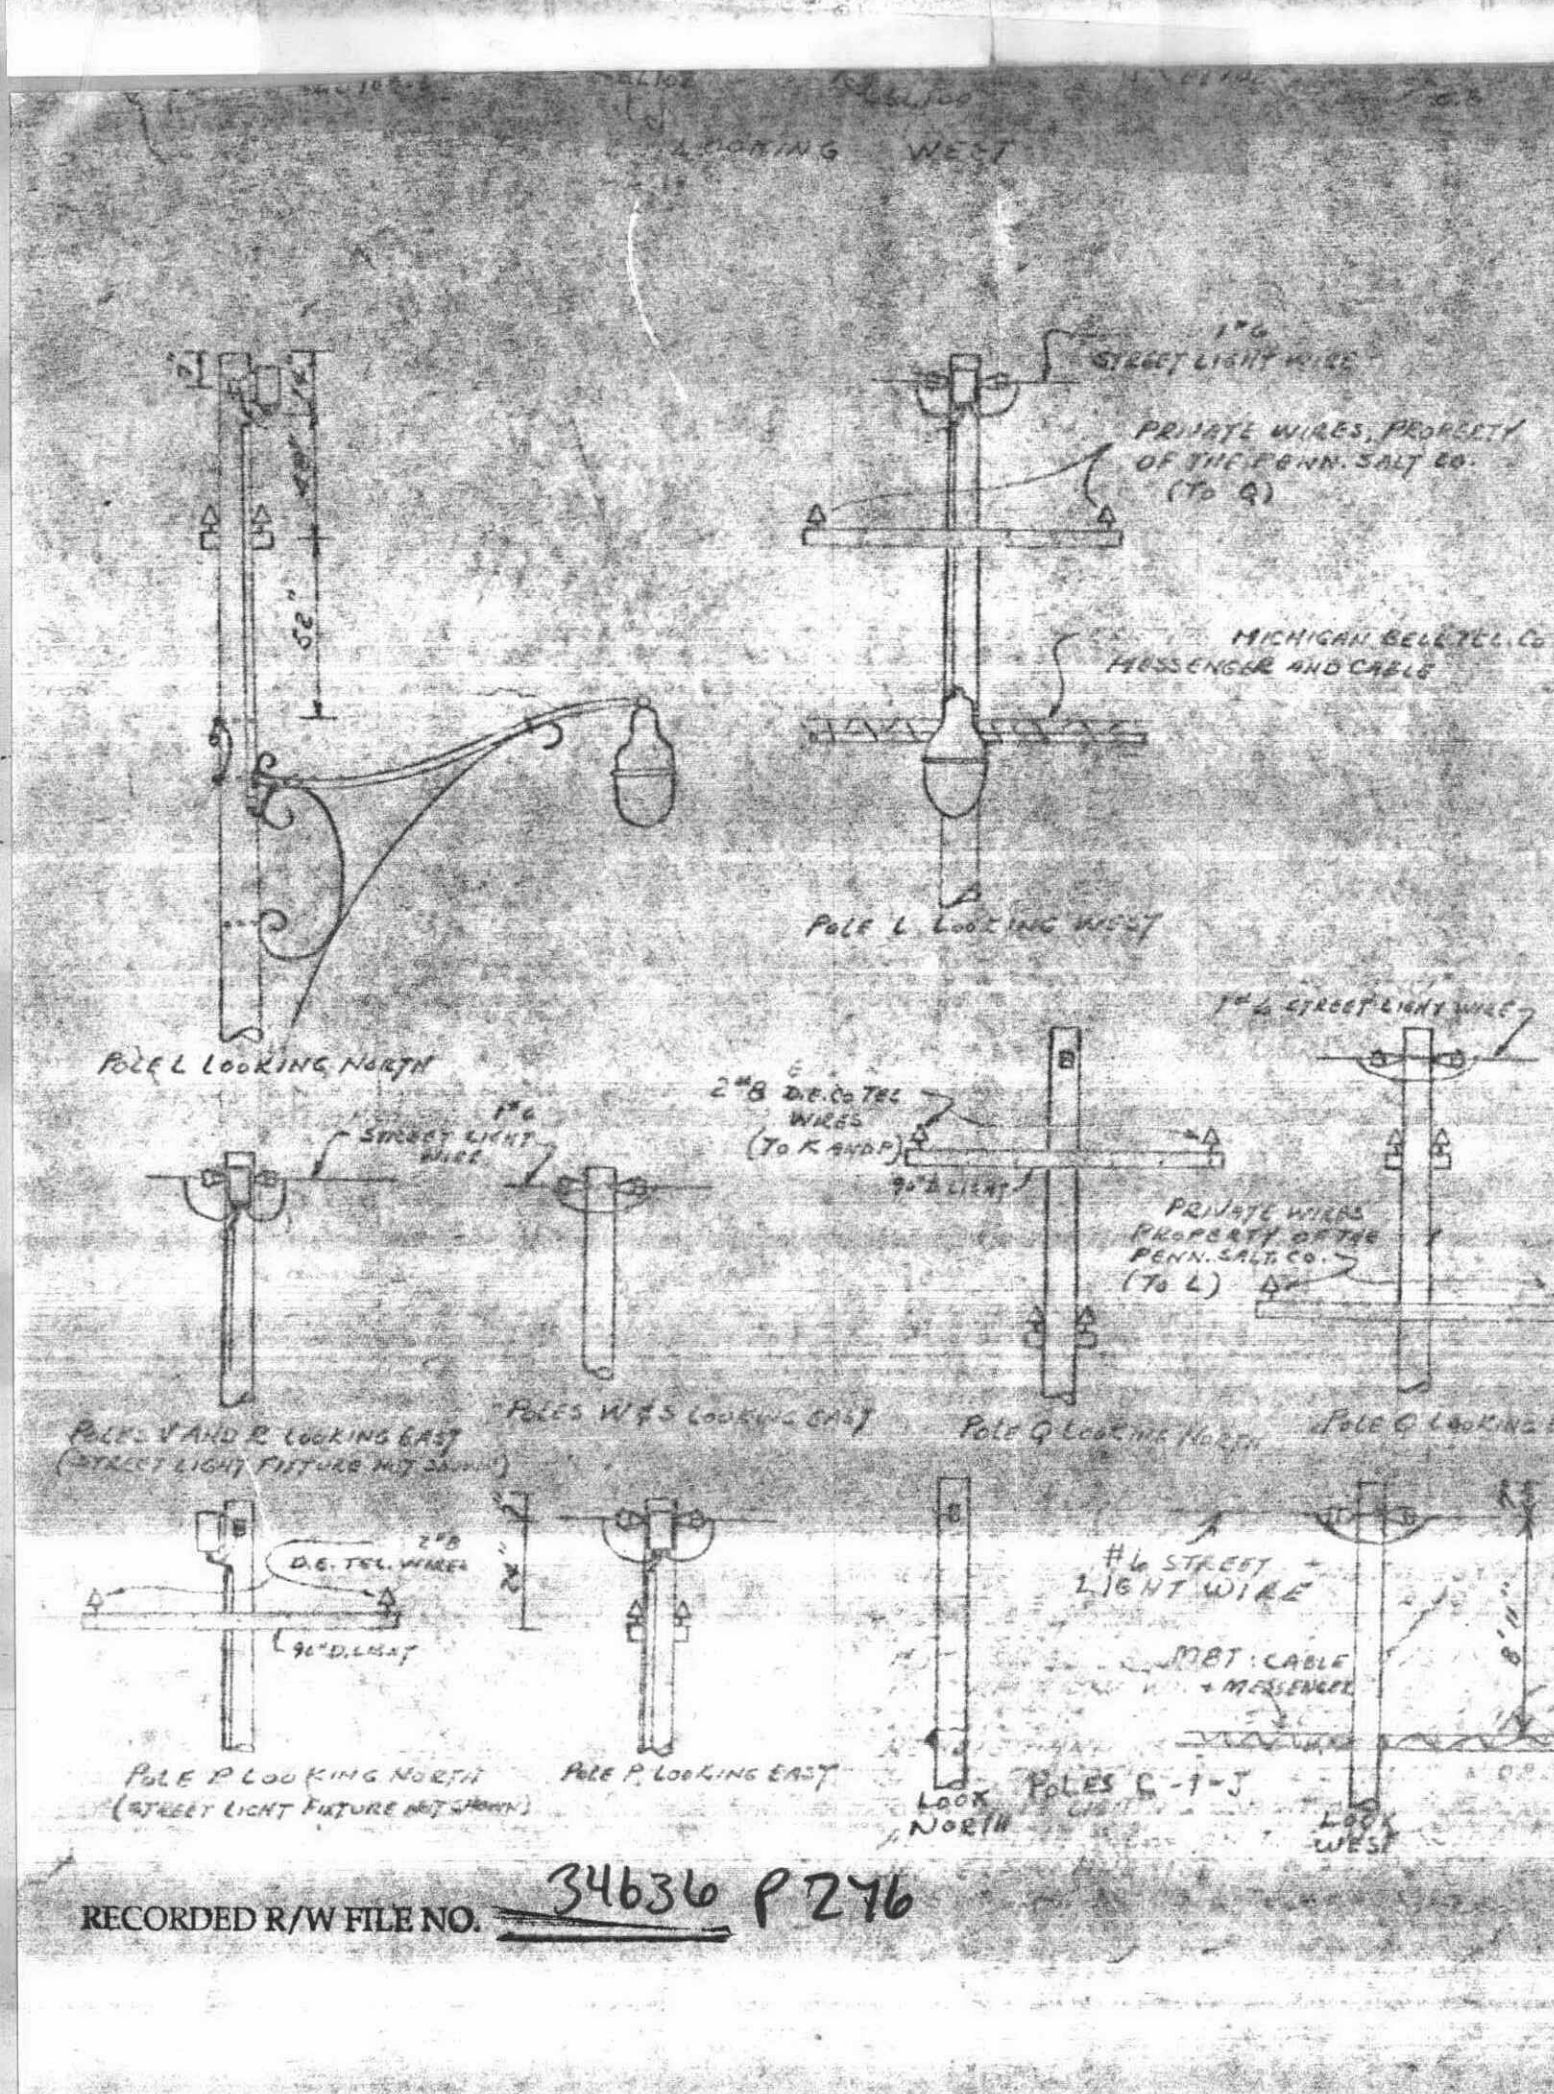 LOOKING WEST
1#6
STREET LIGHT WIRE
PRIVATE WIRES, PROPERTY
OF THE PENN. SALT CO.
(TO Q)
52"
MICHIGAN BELL TEL. CO
MESSENGER AND CABLE
POLE L LOOKING WEST
POLE L LOOKING NORTH
1#6 STREET LIGHT WIRE
2#8 D.E. CO TEL
WIRES
(TO K AND P)
1#6
STREET LIGHT
WIRE
PRIVATE WIRES
PROPERTY OF THE
PENN. SALT. CO.
(TO L)
POLES V AND R LOOKING EAST
(STREET LIGHT FIXTURE NOT SHOWN)
POLES W & S LOOKING EAST
POLE Q LOOKING NORTH
POLE Q LOOKING
2#8
D.E. TEL. WIRES
24"
#6 STREET
LIGHT WIRE
8'11"
MBT. CABLE
+ MESSENGER
POLE P LOOKING NORTH
(STREET LIGHT FIXTURE NOT SHOWN)
POLE P LOOKING EAST
LOOK
NORTH
POLES C-I-J
LOOK
WEST
RECORDED R/W FILE NO. 34636 P276